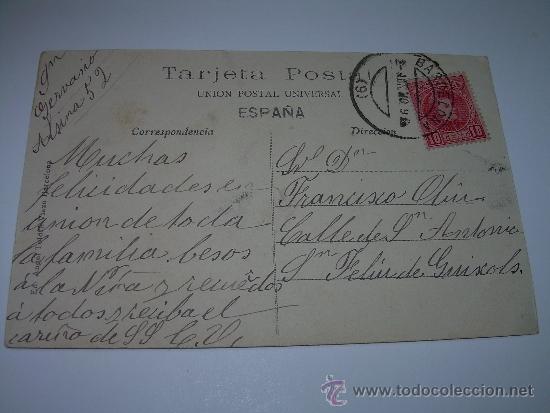 Sn
Gervasio
Alsina 52
Tarjeta Postal
UNION POSTAL UNIVERSAL
ESPAÑA
Correspondencia
Dirección
Muchas
felicidades en
union de toda
la familia besos
á la Niña y recuerdos
á todos y reciba el
cariño de SS C.V.
Sr. Dn
Francisco Oliu
Calle de Sn Antonio
Sn Feliu de Guixols
Barcelona
BARCELONA
(6)
10
10
todocoleccion